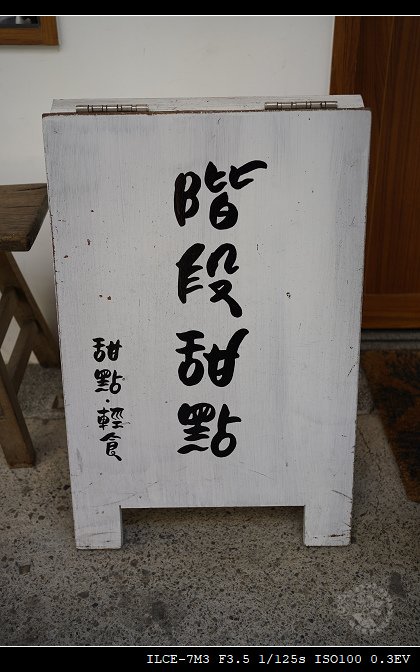 階段甜點
甜點·輕食
ILCE-7M3 F3.5 1/125s ISO100 0.3EV